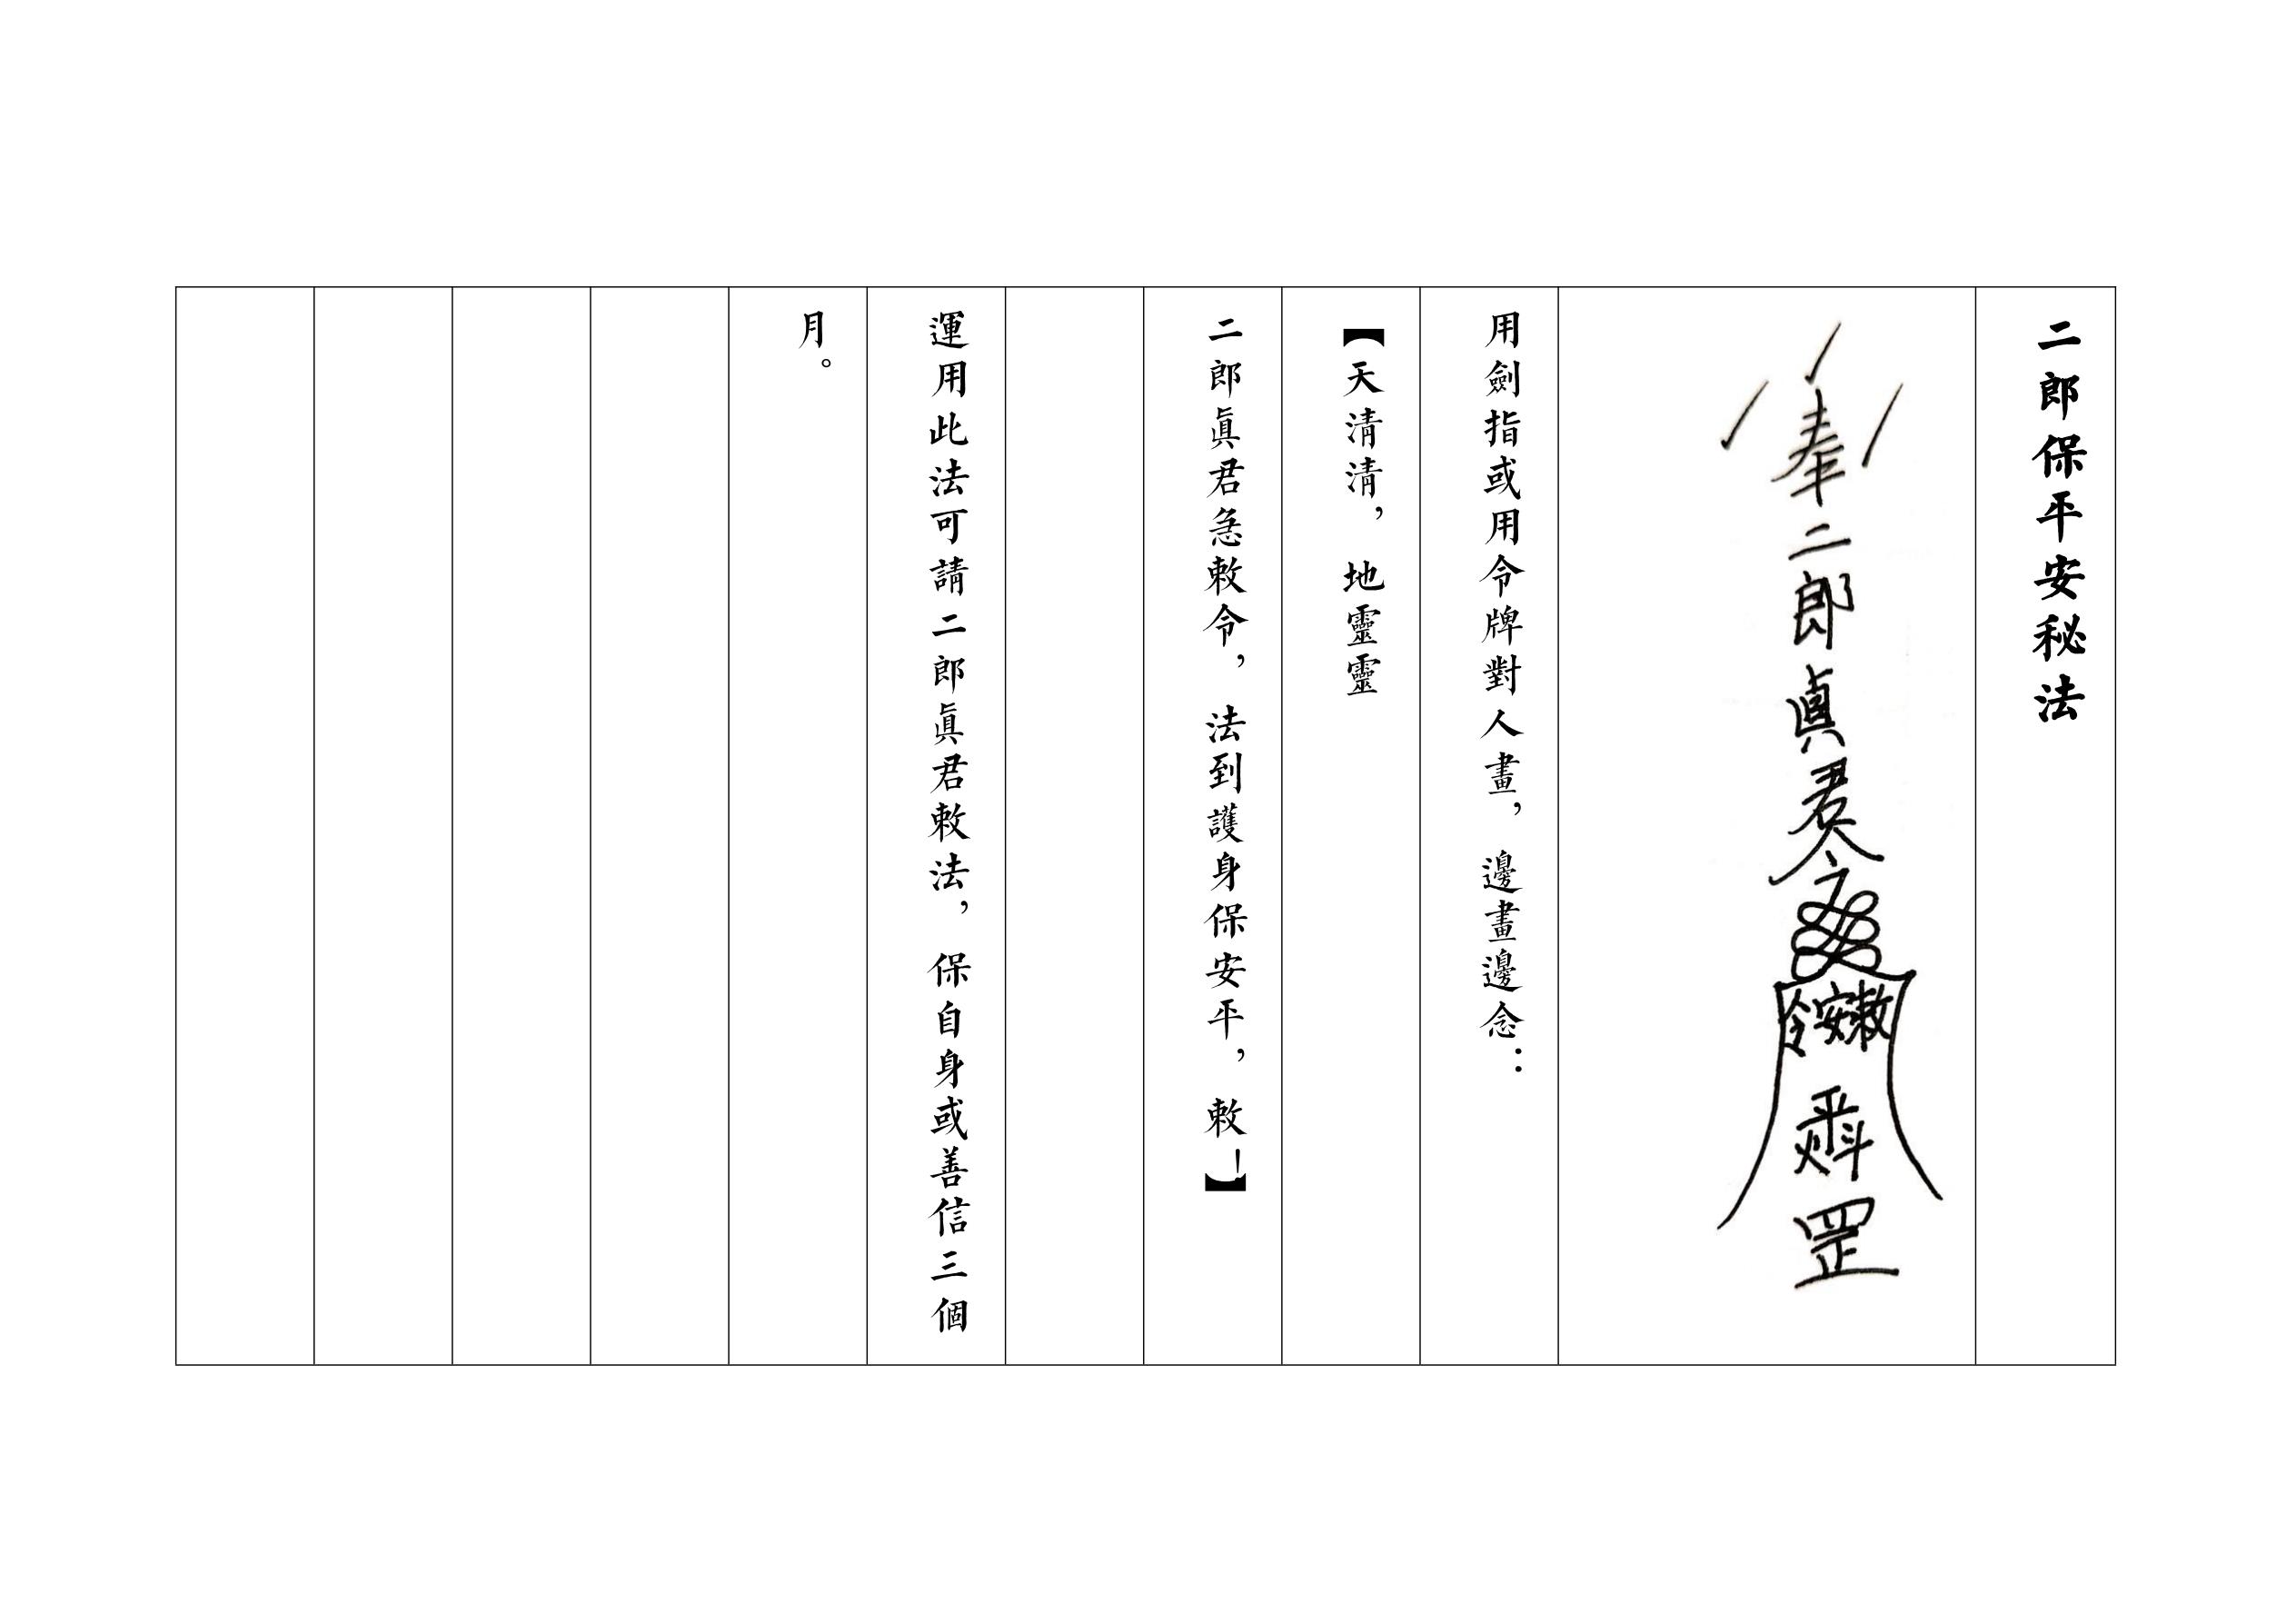 二郎保平安秘法
奉二郎眞君令
敕安令
罡
用劍指或用令牌對人畫，邊畫邊念：
【天清清，地靈靈
二郎眞君急敕令，法到護身保安平，敕！】
運用此法可請二郎眞君敕法，保自身或善信三個
月。